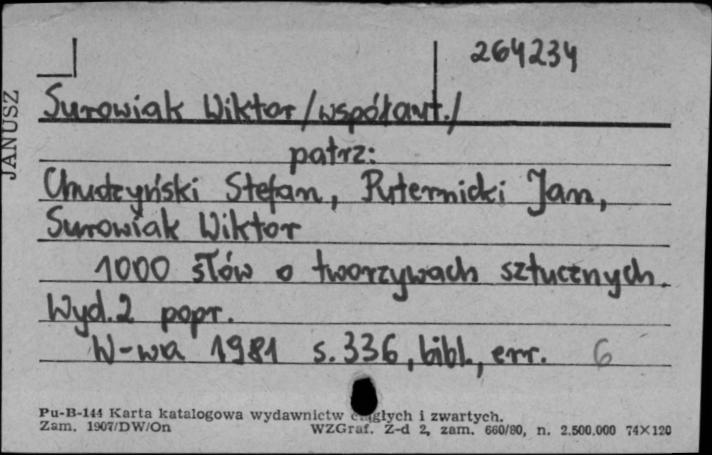 264234
JANUSZ
Surowiak Wiktor /współaut./
patrz:
Chudzyński Stefan, Puternicki Jan,
Surowiak Wiktor
1000 słów o tworzywach sztucznych.
Wyd. 2 popr.
W-wa 1981 s. 336, bibl., err. 6
Pu-B-144 Karta katalogowa wydawnictw ciągłych i zwartych.
Zam. 1907/DW/On WZGraf. Z-d 2, zam. 660/80, n. 2.500.000 74×120